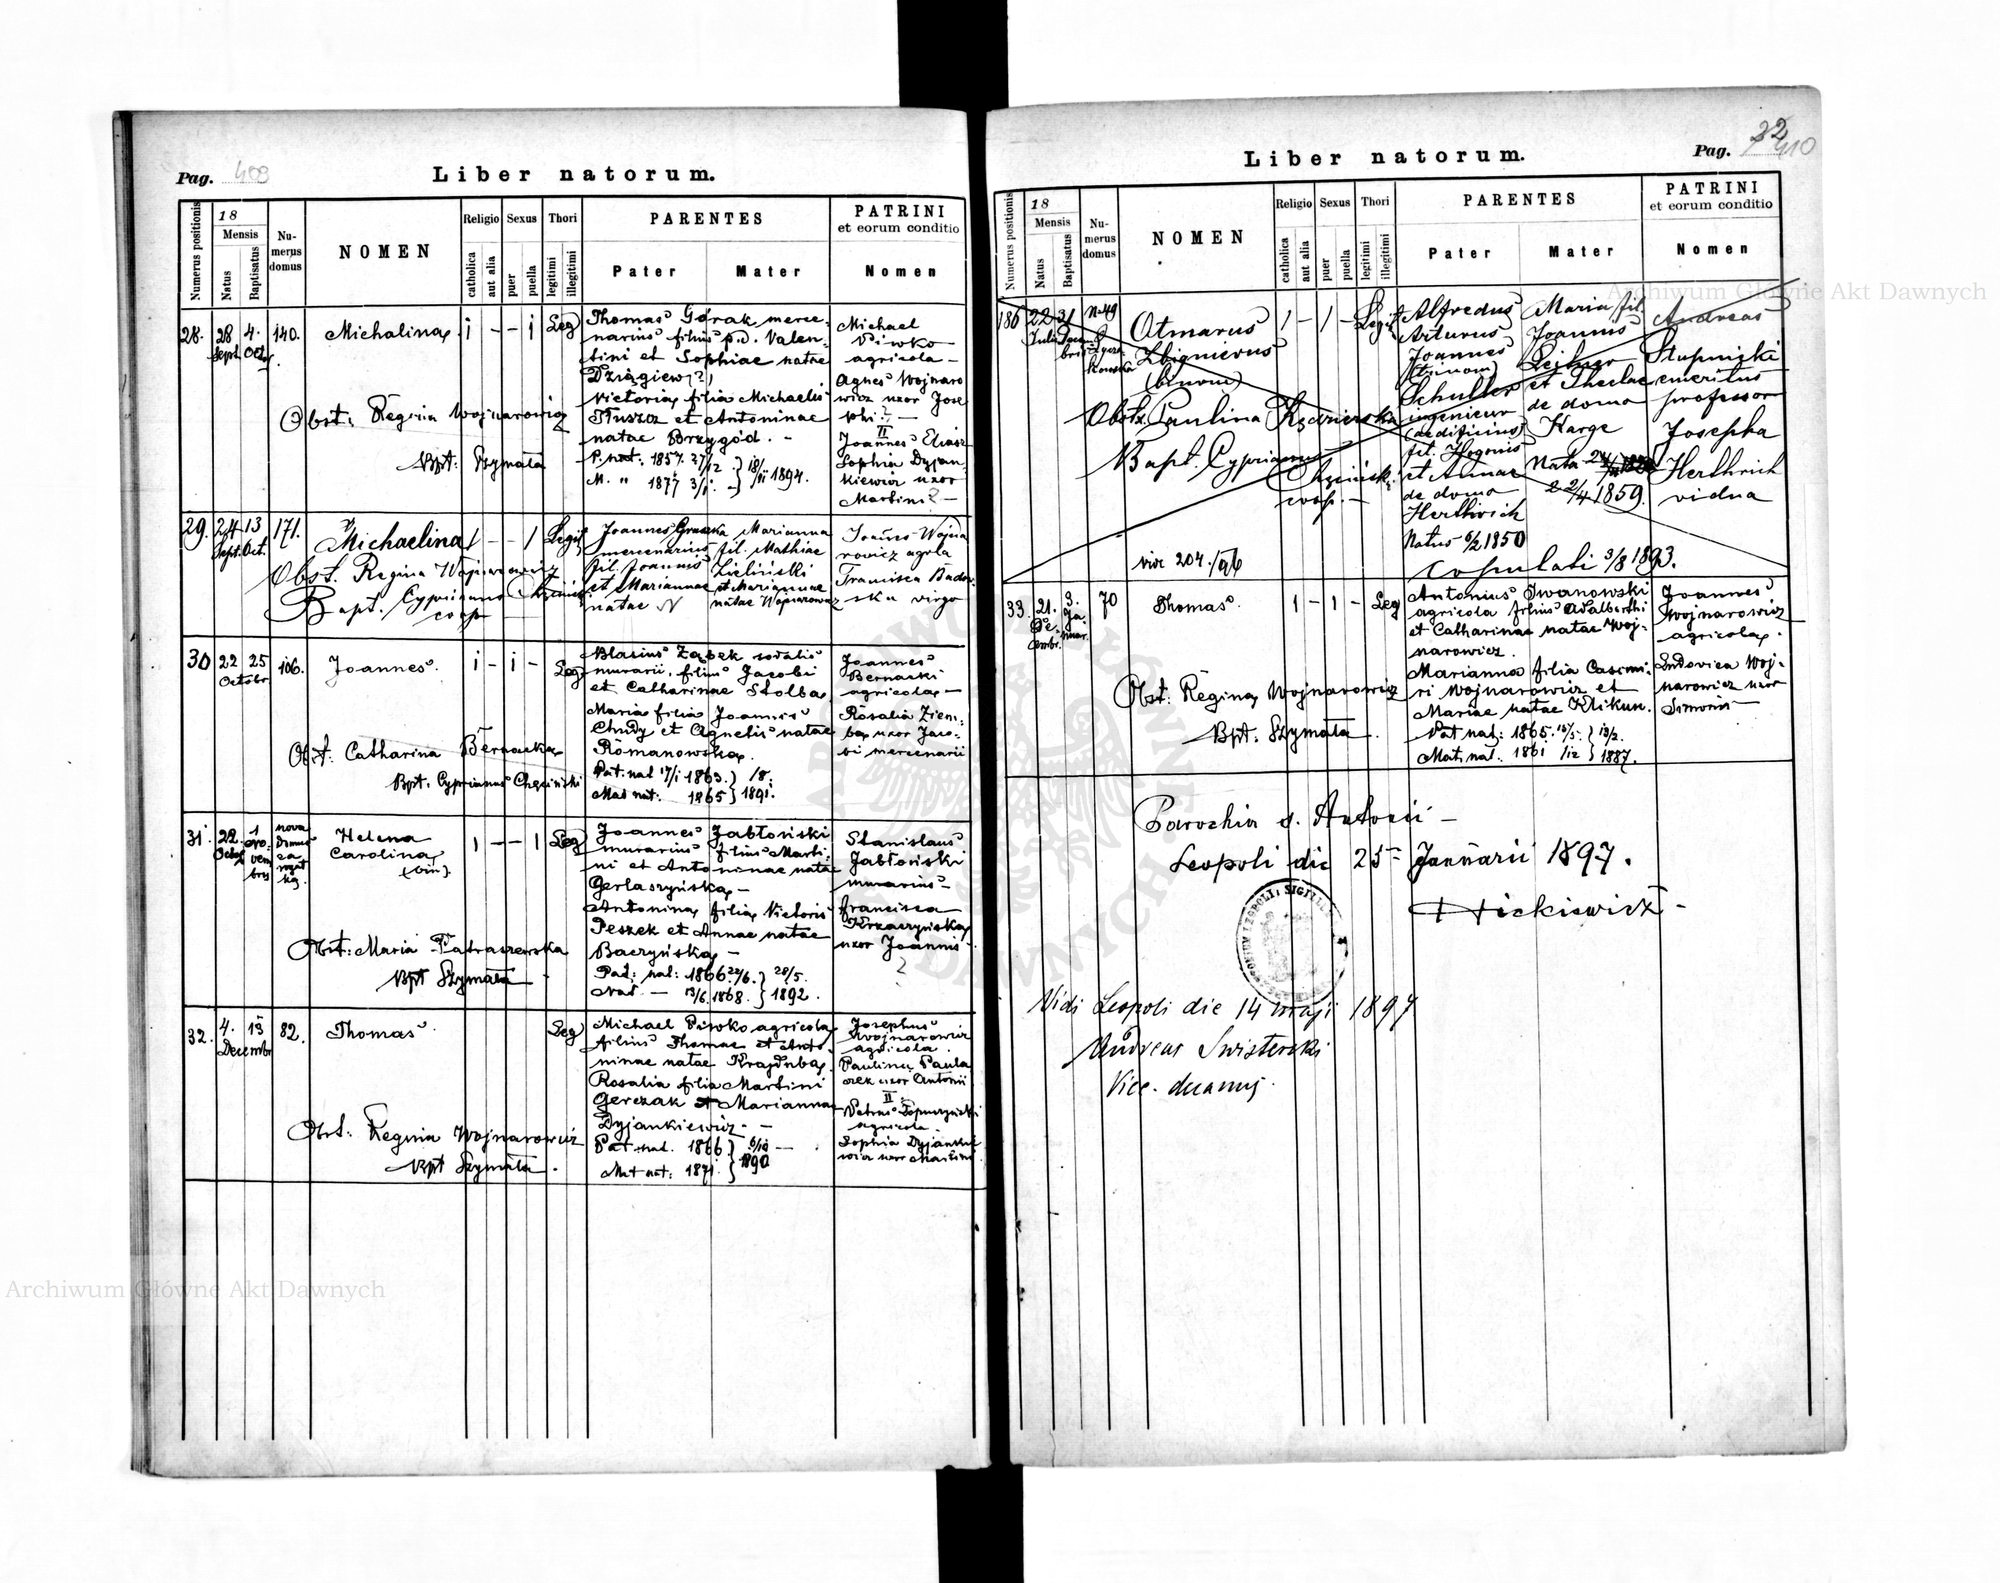 Pag. 409
Liber natorum.
Numerus positionis
18
Mensis
Natus
Baptisatus
Nu-
merus
domus
NOMEN
Religio
catholica
aut alia
Sexus
puer
puella
Thori
legitimi
illegitimi
PARENTES
Pater
Mater
PATRINI
et eorum conditio
Nomen
28. 28 Sept. 4. Oct. 140. Michalina 1 - - 1 Leg
Thomas Górak merce-
narius filius p.d. Valen-
tini et Sophiae natae
Dziągiew(?)
Victoria filia Michaelis
Tłuszcz et Antoninae
natae Brzygód. -
P. nat. 1857. 27/12
M. " 1877 3/1. } 18/11 1894.
Michael
Piwko
agricola -
Agnes Wojnaro
wicz uxor Jose
phi? -
II
Joannes Eliasz
Sophia Dyjan-
kiewicz uxor
Martini? -
Obst: Regina Wojnarowicz
Bpt: Szymała
29. 24 Sept. 13 Oct. 171. Michaelina 1 - - 1 Legit
Joannes Gruszka
mercenarius
fil. Joannis
et Mariannae
natae N
Marianna
fil. Mathiae
Zieliński
et Mariannae
natae
Joannes Wojna
rowicz agrla
Francisca Bado
ska virgo
Obst. Regina Wojnarowicz
Bapt. Cyprianus Chęciński
coop
30 22 25 Octobr. 106. Joannes. 1 - 1 - Leg.
Blasius Ząbek sodalis
murarii, filius Jacobi
et Catharinae Stolba,
Maria filia Joannis
Chudy et Agnetis natae
Romanowska.
Pat. nat 17/1 1863.
Mat nat. 1865 } 18. 1891.
Joannes
Bernacki
agricola -
Rosalia Ziem-
ba uxor Jaco-
bi mercenarii
Obst. Catharina Bernacka
Bpt. Cyprianus Chęciński
31. 22. Octob. 1 No-
vem
bris
nova
domus
za
rogat
ką.
Helena
Carolina
(bin). 1 - - 1 Leg
Joannes Jabłoński
murarius filius Marti-
ni et Antoninae natae
Gerlaszyńska -
Antonina filia Victoris
Peszek et Annae natae
Baczyńska -
Pat: nat: 1866 22/6.
Mat. - 13/6. 1868. } 28/5. 1892.
Stanislaus
Jabłoński
murarius -
Francisca
Krzaczyńska
uxor Joannis -
?
Obst: Maria Patraszewska
Bpt Szymała
32. 4. 13 Decembr 82. Thomas. Leg
Michael Piwko agricola
filius Thomae et Anto-
ninae natae Krajduba,
Rosalia filia Martini
Gerczak et Marianna
Dyjankiewicz. -
Pat. nat. 1866
Mat nat: 1871. } 6/10 1890
Josephus
Wojnarowicz
agricola.
Paulina Paula
czek uxor Antonii
II
Petrus
agricola.
Sophia Dyjankie
wicz uxor Martini
Obst: Regina Wojnarowicz
Bpt Szymała.
Pag. 410
22
Liber natorum.
Numerus positionis
18
Mensis
Natus
Baptisatus
Nu-
merus
domus
NOMEN
Religio
catholica
aut alia
Sexus
puer
puella
Thori
legitimi
illegitimi
PARENTES
Pater
Mater
PATRINI
et eorum conditio
Nomen
186 22 Julii 31 Decem
bris No 49
Otmarus
Zbignievus
(binom) 1 - 1 - Legit
Alfredus
Arturus
Joannes
(trinom)
Schuller
ingenieur
(aedificius)
fil. Hugonis
et Annae
de domo
Herthrich
Natus 6/2 1850
Maria fil.
Joannis
Leitner
et Theclae
de domo
Karge
Nata
22/4 1859.
Andreas
Stupnicki
emeritus
professor
Josepha
Herthrich
vidua
Obstx. Paulina Kędzierska
Bapt. Cyprianus Chęciński
coop. -
vide 204./96
copulati 3/8 1893.
33. 21. De-
cembr. 3. Ja-
nuar. 70 Thomas. 1 - 1 - Leg
Antonius Iwanowski
agricola filius Adalberthi
et Catharinae natae Woj-
narowicz.
Marianna filia Casimi-
ri Wojnarowicz et
Mariae natae Klikun.
Pat nat: 1865. 15/5.
Mat. nat. 1861 /12 } 13/2. 1887.
Joannes
Wojnarowicz
agricola.
Ludovica Woj-
narowicz uxor
Simonis -
Obst: Regina Wojnarowicz
Bpt: Szymała.
Parochia s. Antonii -
Leopoli die 25 Januarii 1897.
Vidi Leopoli die 14 maji 1897
Andreas Swisterski
Vice-decanus.
Archiwum Główne Akt Dawnych
Archiwum Główne Akt Dawnych